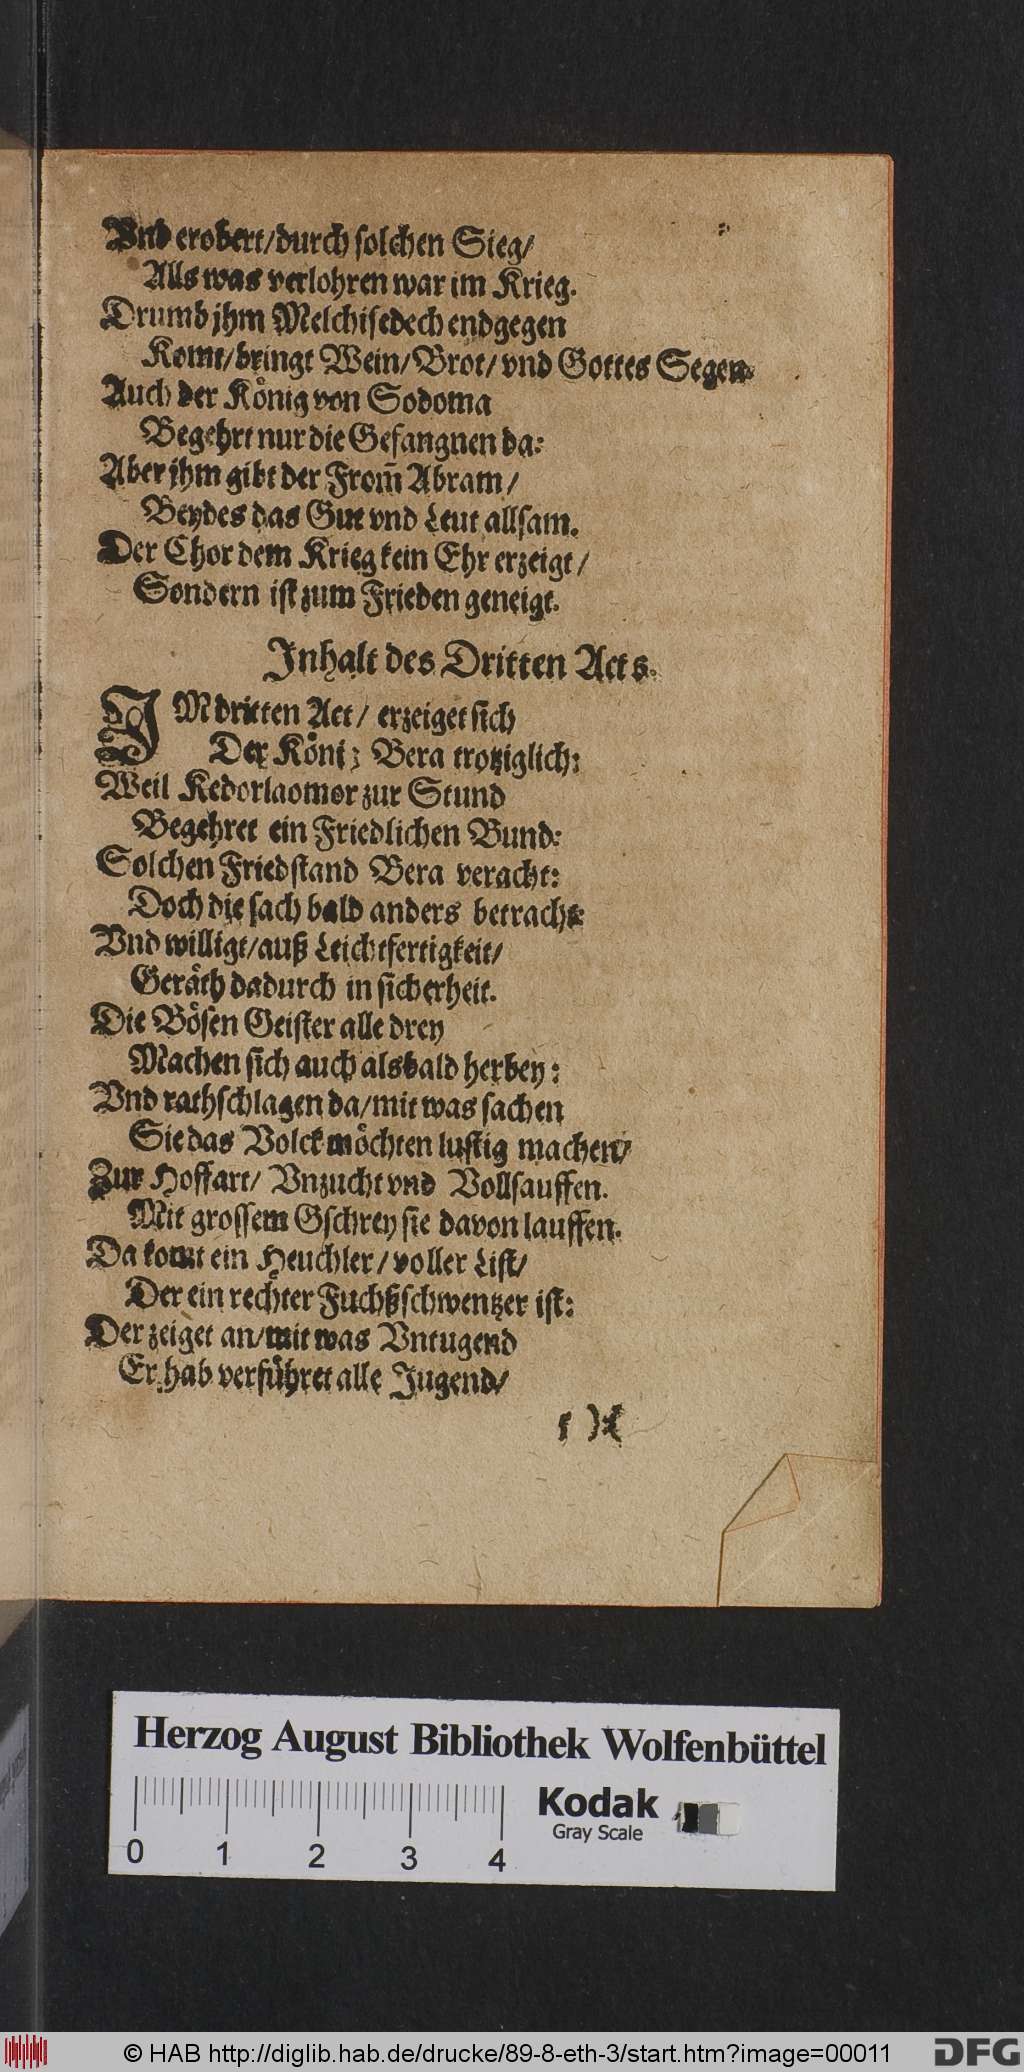 Vnd erobert/durch solchen Sieg/
Alls was verlohren war im Krieg.
Drumb jhm Melchisedech endgegen
Komt/bringt Wein/Brot/vnd Gottes Segen.
Auch der König von Sodoma
Begehrt nur die Gefangnen da:
Aber jhm gibt der From̄ Abram/
Beydes das Gut vnd Leut allsam.
Der Chor dem Krieg kein Ehr erzeigt/
Sondern ist zum Frieden geneigt.
Inhalt des Dritten Acts.
IM dritten Act/ erzeiget sich
Der König Bera trotziglich:
Weil Kedorlaomor zur Stund
Begehret ein Friedlichen Bund:
Solchen Friedstand Bera veracht:
Doch die sach bald anders betracht:
Vnd willigt/auß Leichtfertigkeit/
Geräth dadurch in sicherheit.
Die Bösen Geister alle drey
Machen sich auch alsbald herbey:
Vnd rathschlagen da/mit was sachen
Sie das Volck möchten lustig machen/
Zur Hoffart/ Vnzucht vnd Vollsauffen.
Mit grossem Gschrey sie davon lauffen.
Da komt ein Heuchler/voller List/
Der ein rechter Fuchßschwentzer ist:
Der zeiget an/mit was Vntugend
Er hab verführet alle Jugend/
Herzog August Bibliothek Wolfenbüttel
Kodak
Gray Scale
0 1 2 3 4
© HAB http://diglib.hab.de/drucke/89-8-eth-3/start.htm?image=00011
DFG